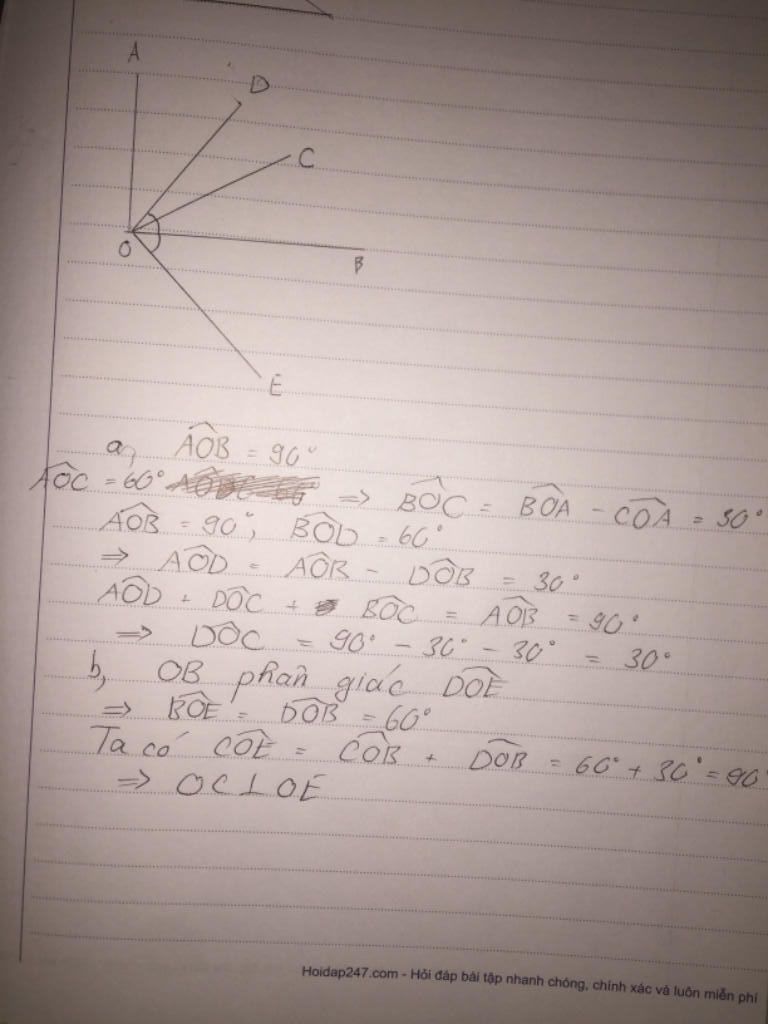 A
D
C
O
B
E
a, AÔB = 90°
AÔC = 60° => BÔC = BÔA - CÔA = 30°
AÔB = 90°, BÔD = 60°
=> AÔD = AÔB - DÔB = 30°
AÔD + DÔC + BÔC = AÔB = 90°
=> DÔC = 90° - 30° - 30° = 30°
b, OB phân giác DÔE
=> BÔE = DÔB = 60°
Ta có CÔE = CÔB + DÔB = 60° + 30° = 90°
=> OC⊥OE
Hoidap247.com - Hỏi đáp bài tập nhanh chóng, chính xác và luôn miễn phí